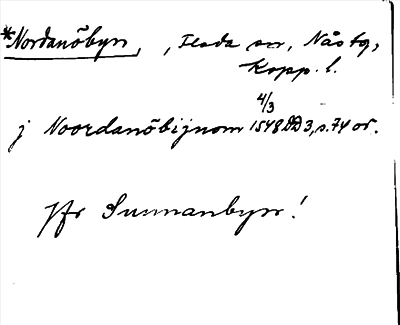 *Nordanöbyn, , Floda sn, Nås tg,
Kopp. l.
4/3
j Noordanöbijnom 1548 DD 3, s. 74 or.
Jfr Sunnanbyn!